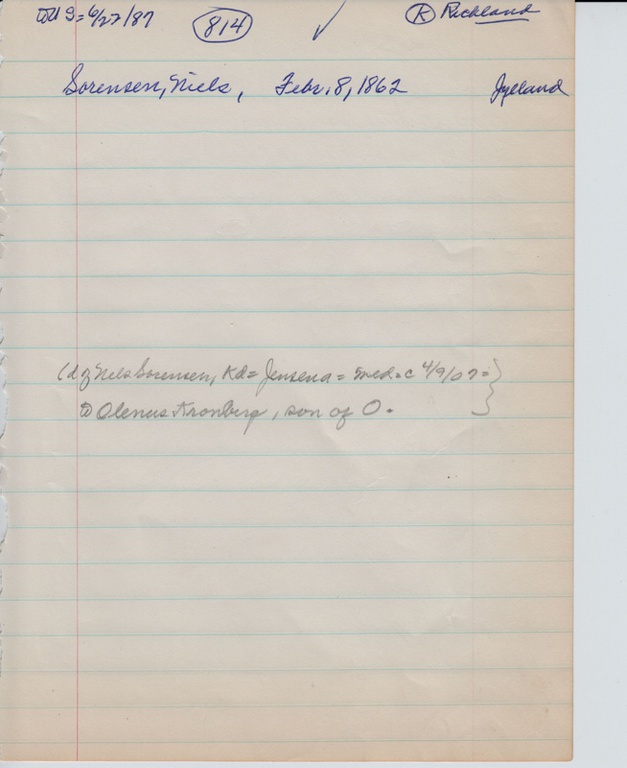 to U S = 6/27/87 814 ✓ K Richland
Sorensen, Niels, Febr. 8, 1862 Jylland
(d of Nels Sorensen, Kd = Jensena = med. c 4/9/07 =}
to Olenus Kronberg, son of O.